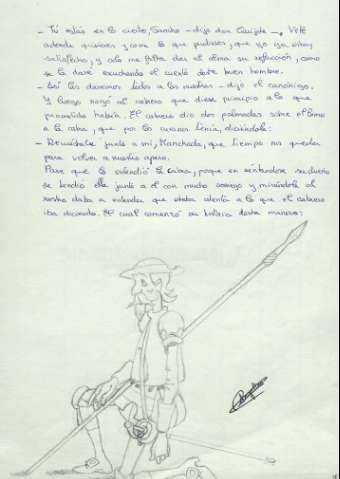 - Tú estás en lo cierto, Sancho - dijo don Quijote -. Vete
adonde quisieres y come lo que pudieres, que yo ya estoy
satisfecho, y sólo me falta dar al alma su refacción, como
se la daré escuchando el cuento deste buen hombre.
- Así las daremos todos a las nuestras - dijo el canónigo.
Y luego rogó al cabrero que diese principio a lo que
prometido había. El cabrero dio dos palmadas sobre el lomo
a la cabra, que por los cuernos tenía, diciéndole:
- Recuéstate junto a mí, Manchada, que tiempo nos queda
para volver a nuestro apero.
Parece que lo entendió la cabra, porque en sentándose su dueño
se tendió ella junto a él con mucho sosiego y mirándole al
rostro daba a entender que estaba atenta a lo que el cabrero
iba diciendo. El cual comenzó su historia desta manera: